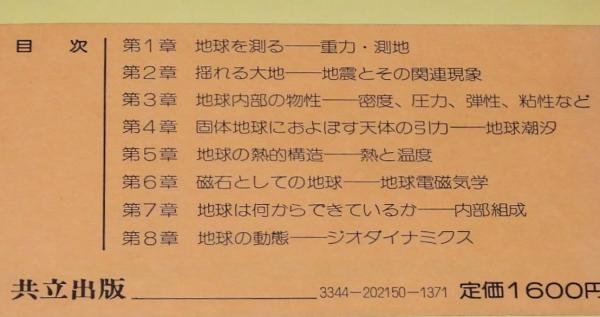 目次
第1章 地球を測る──重力・測地
第2章 揺れる大地──地震とその関連現象
第3章 地球内部の物性──密度、圧力、弾性、粘性など
第4章 固体地球におよぼす天体の引力──地球潮汐
第5章 地球の熱的構造──熱と温度
第6章 磁石としての地球──地球電磁気学
第7章 地球は何からできているか──内部組成
第8章 地球の動態──ジオダイナミクス
共立出版 3344-202150-1371 定価1600円